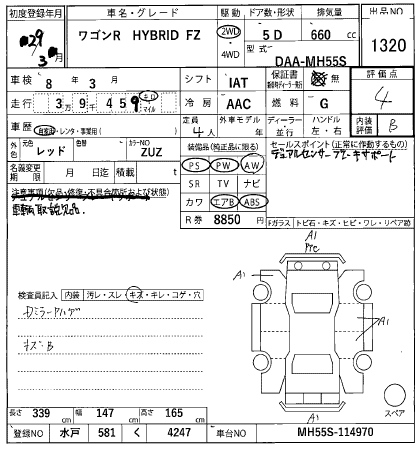 初度登録年月 車名・グレード 駆動 ドア数・形状 排気量 出品NO
29 3月 ワゴンR HYBRID FZ 2WD 4WD 5D 660 cc 1320
型式 DAA-MH55S
車検 8年3月 シフト IAT 保証書 無 評価点 4
走行 39459 km マイル 冷房 AAC 燃料 G
車歴 自家用・レンタ・事業用( ) 定員 4人 外車モデル 年 ディーラー・並行 ハンドル 左・右 内装評価 B
外色 元色 レッド 色替 カラーNO ZUZ 装備品(純正品に限る) セールスポイント(正常に動作するもの)
名義変更期限 月 日迄 積載量 t PS PW AW デュアルセンサーブレーキサポート
注意事項(欠品・修復・不具合箇所および状態) SR TV ナビ
カワ エアB ABS
取説欠品 R券 8850円 Fガラス トビ石・キズ・ヒビ・ワレ・リペア跡
A1
A1
検査員記入 内装 汚レ・スレ・キズ・キレ・コゲ・穴
ドミラーアハゲ
キズ・B
A1
A1
スペア
長さ 339 cm 幅 147 cm 高さ 165 cm
登録NO 水戸 581 く 4247 車台NO MH55S-114970